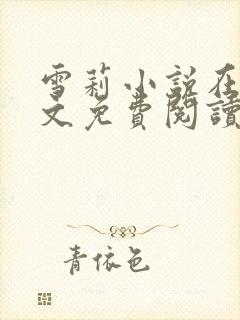 雪莉小说在
文免費閱讀
青依色